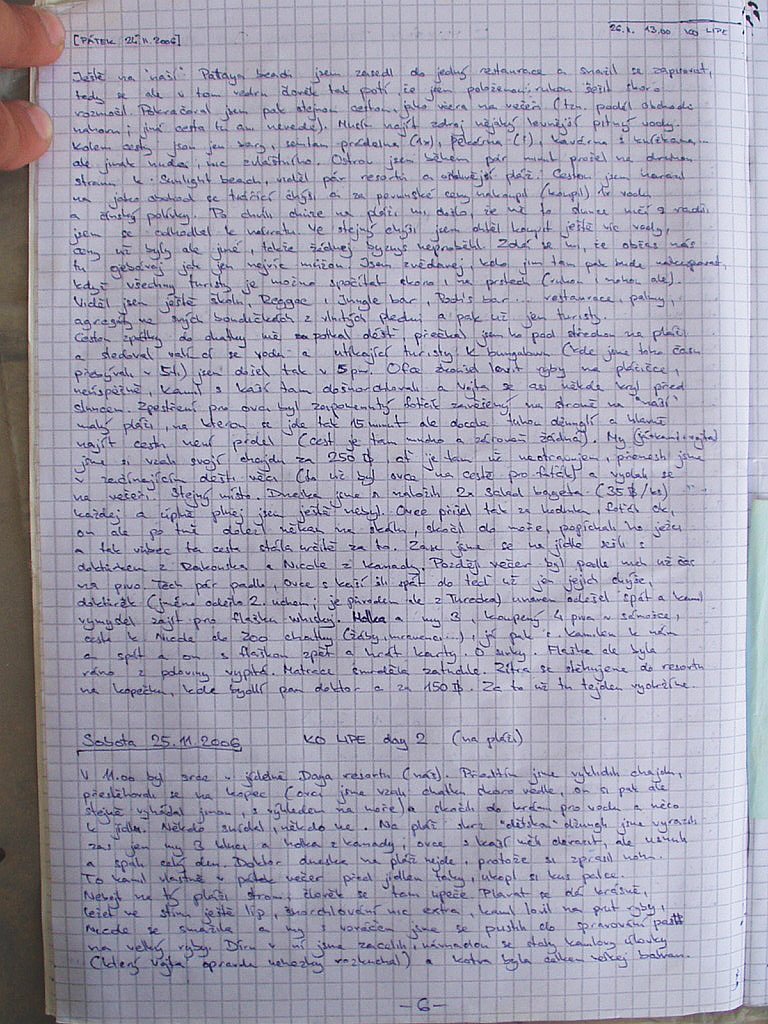 [PÁTEK 24.11.2006]
26.1. 13.00 KO LIPE
Ještě na "naší" Pataya beach jsem zasedl do jedný restaurace a snažil se zapisovat,
tedy se ale v tom vedru člověk tak potí že jen položenou rukou sešit skoro
rozmočil. Pokračoval jsem pak stejnou cestou, jako včera na večeři (tzn. podél obchodů
nahoru; jiná cesta tu ani nevede). Musím najít zdroj nějaký levnější pitný vody.
Kolem cesty jsou jen bary, semtam prádelna (1x), pekárna (!), kavárna s knížkama...
ale jinak nuda, nic zvláštního. Ostrov jsem během pár minut prošel na druhou
stranu k Sunlight beach, viděl pár resortů a pláž. Cestou jsem narazil
na jako obchod se tvářící chýši a za ceny nakoupil (koupil) 1x vodu
a čínský polívky. Po chvíli chůze na pláži mi došlo, že
jsem se odhodlal k návratu. Ve stejný chýši jsem chtěl koupit ještě víc vody,
ceny už byly ale jiné, takže žádnej byznys neproběhl. Zdá se mi, že občas nás
tu jak jen nejvíc můžou. Jsem zvědavej, kdo jim tam pak bude nakupovat,
když všechny turisty je možno spočítat skoro i na prstech (rukou i nohou ale).
Viděl jsem ještě školu, Reggae, Jungle bar, Bob's bar... restaurace, palmy,
agregáty ve svých boudičkách z vlnitých plechů a pak už jen turisty.
Cestou zpátky do chatky mě zapolkal déšť, přečkal jsem ho pod střechou na pláži
a sledoval valící se vodu a utíkající turisty. K bungalovu (kde jsme toho času
přebývali v 5ti) jsem došel tak v 5pm. Ofca zkoušel lovit ryby na plážičce,
neúspěšně, kamil s kačí tam došnorchlovali a Vojta se asi někde kryl před
sluncem. Zpestření pro ovci byl zapomenutý foťák zavěšený na stromě na "naší"
malý pláži, na kterou se jde tak 15 minut ale docela tuhou džunglí a hlavně
najít cestu není prdel (cest je tam mnoho a zároveň žádná). My (já, kamil, vojta)
jsme si vzali svojí chajdu za 250 ฿, ať je tam už neotravujem, přenesli jsme
v začínajícím dešti věci (to už byl ovce na cestě pro foťák) a vydali se
na večeři. Stejný místo. Dneska jsme si naložili 2x salad bageta (35 ฿/ks)
každej a úplně plnej jsem ještě nebyl. Ovce přišel tak za hodinku, foťák ok,
on ale po tmě dolezl někam na skálu, skočil do moře, popíchali ho ježci
a tak vůbec ta cesta stála určitě za to. Zase jsme se na jídle sešli s
doktůrkem z Rakouska a Nicole z kanady. Později večer byl podle nich už čas
na pivo. Těch pár padlo, Ovce s kačí šli spát do teď už jen jejich chýše,
doktůrek (jméno odešlo 2. uchem; je původem ale z Turecka) unaven odešel spát a kamil
vymyslel zajít pro flašku whisky. Holka a my 3, koupeny 4 piva v sámošce,
cesta k Nicole do 200 chatky (žáby, mravenci...), já pak s kamilem k nám
a spát a on s flaškou zpět a hrát karty. O sirky. Flaška ale byla
ráno z poloviny vypitá. Matrace smrděla zatuchle. Zítra se stěhujeme do resortu
na kopečku, kde bydlí pan doktor a za 150 ฿. Za to už tu tejden vydržíme.
Sobota 25.11.2006 KO LIPE day 2 (na pláži)
V 11.00 byl sraz v jídelně Daya resortu (náš). Předtím jsme vyklidili chajdu,
přestěhovali se na kopec (ovci jsme vzali chatku skoro vedle, on si pak ale
stejně vyhádal jinou, s výhledem na moře) a skočili do krámu pro vodu a něco
k jídlu. Někdo snídal, někdo ne. Na pláž skrz "dětskou" džungli jsme vyrazili
zas jen my 3 kluci a holka z kanady, ovce s kačí měli dorazit, ale usnuli
a spali celý den. Doktor dneska na pláž nejde, protože si zprasil nohu.
To kamil vlastně v pátek večer před jídlem taky, ukopl si kus palce.
Nebejt na tý pláži stromů, člověk se tam upeče. Plavat se dá krásně,
ležet ve stínu ještě líp, šnorchlování nic extra, kamil lovil na prut ryby,
Nicole se smažila a my s voráčem jsme se pustili do spravování pasti
na velký ryby. Díru v ní jsme zacelili, návnadou se staly kamilovy úlovky
(který vojta opravdu nehezky rozkuchal) a kotva byla celkem velkej balvan.
– 6 –